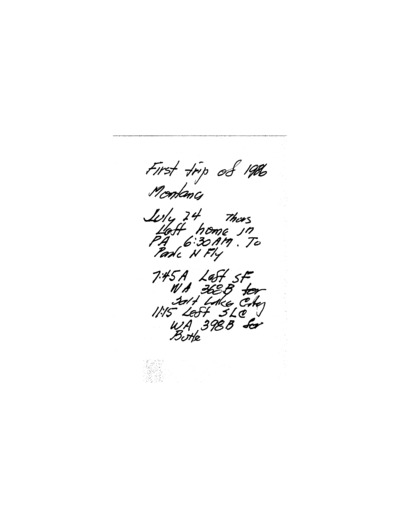 First trip of 1986
Montana
July 24 Thurs
Left home in
PA 6:30 AM. To
Park N Fly
7:45A Left SF
WA 368B for
Salt Lake City
11:15 Left SLC
WA 398B for
Butte